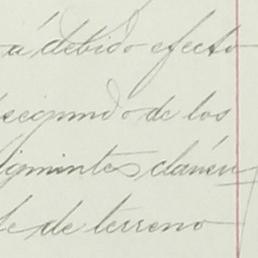 á debido efecto
segundo de los
siguientes cláusu
te de terreno